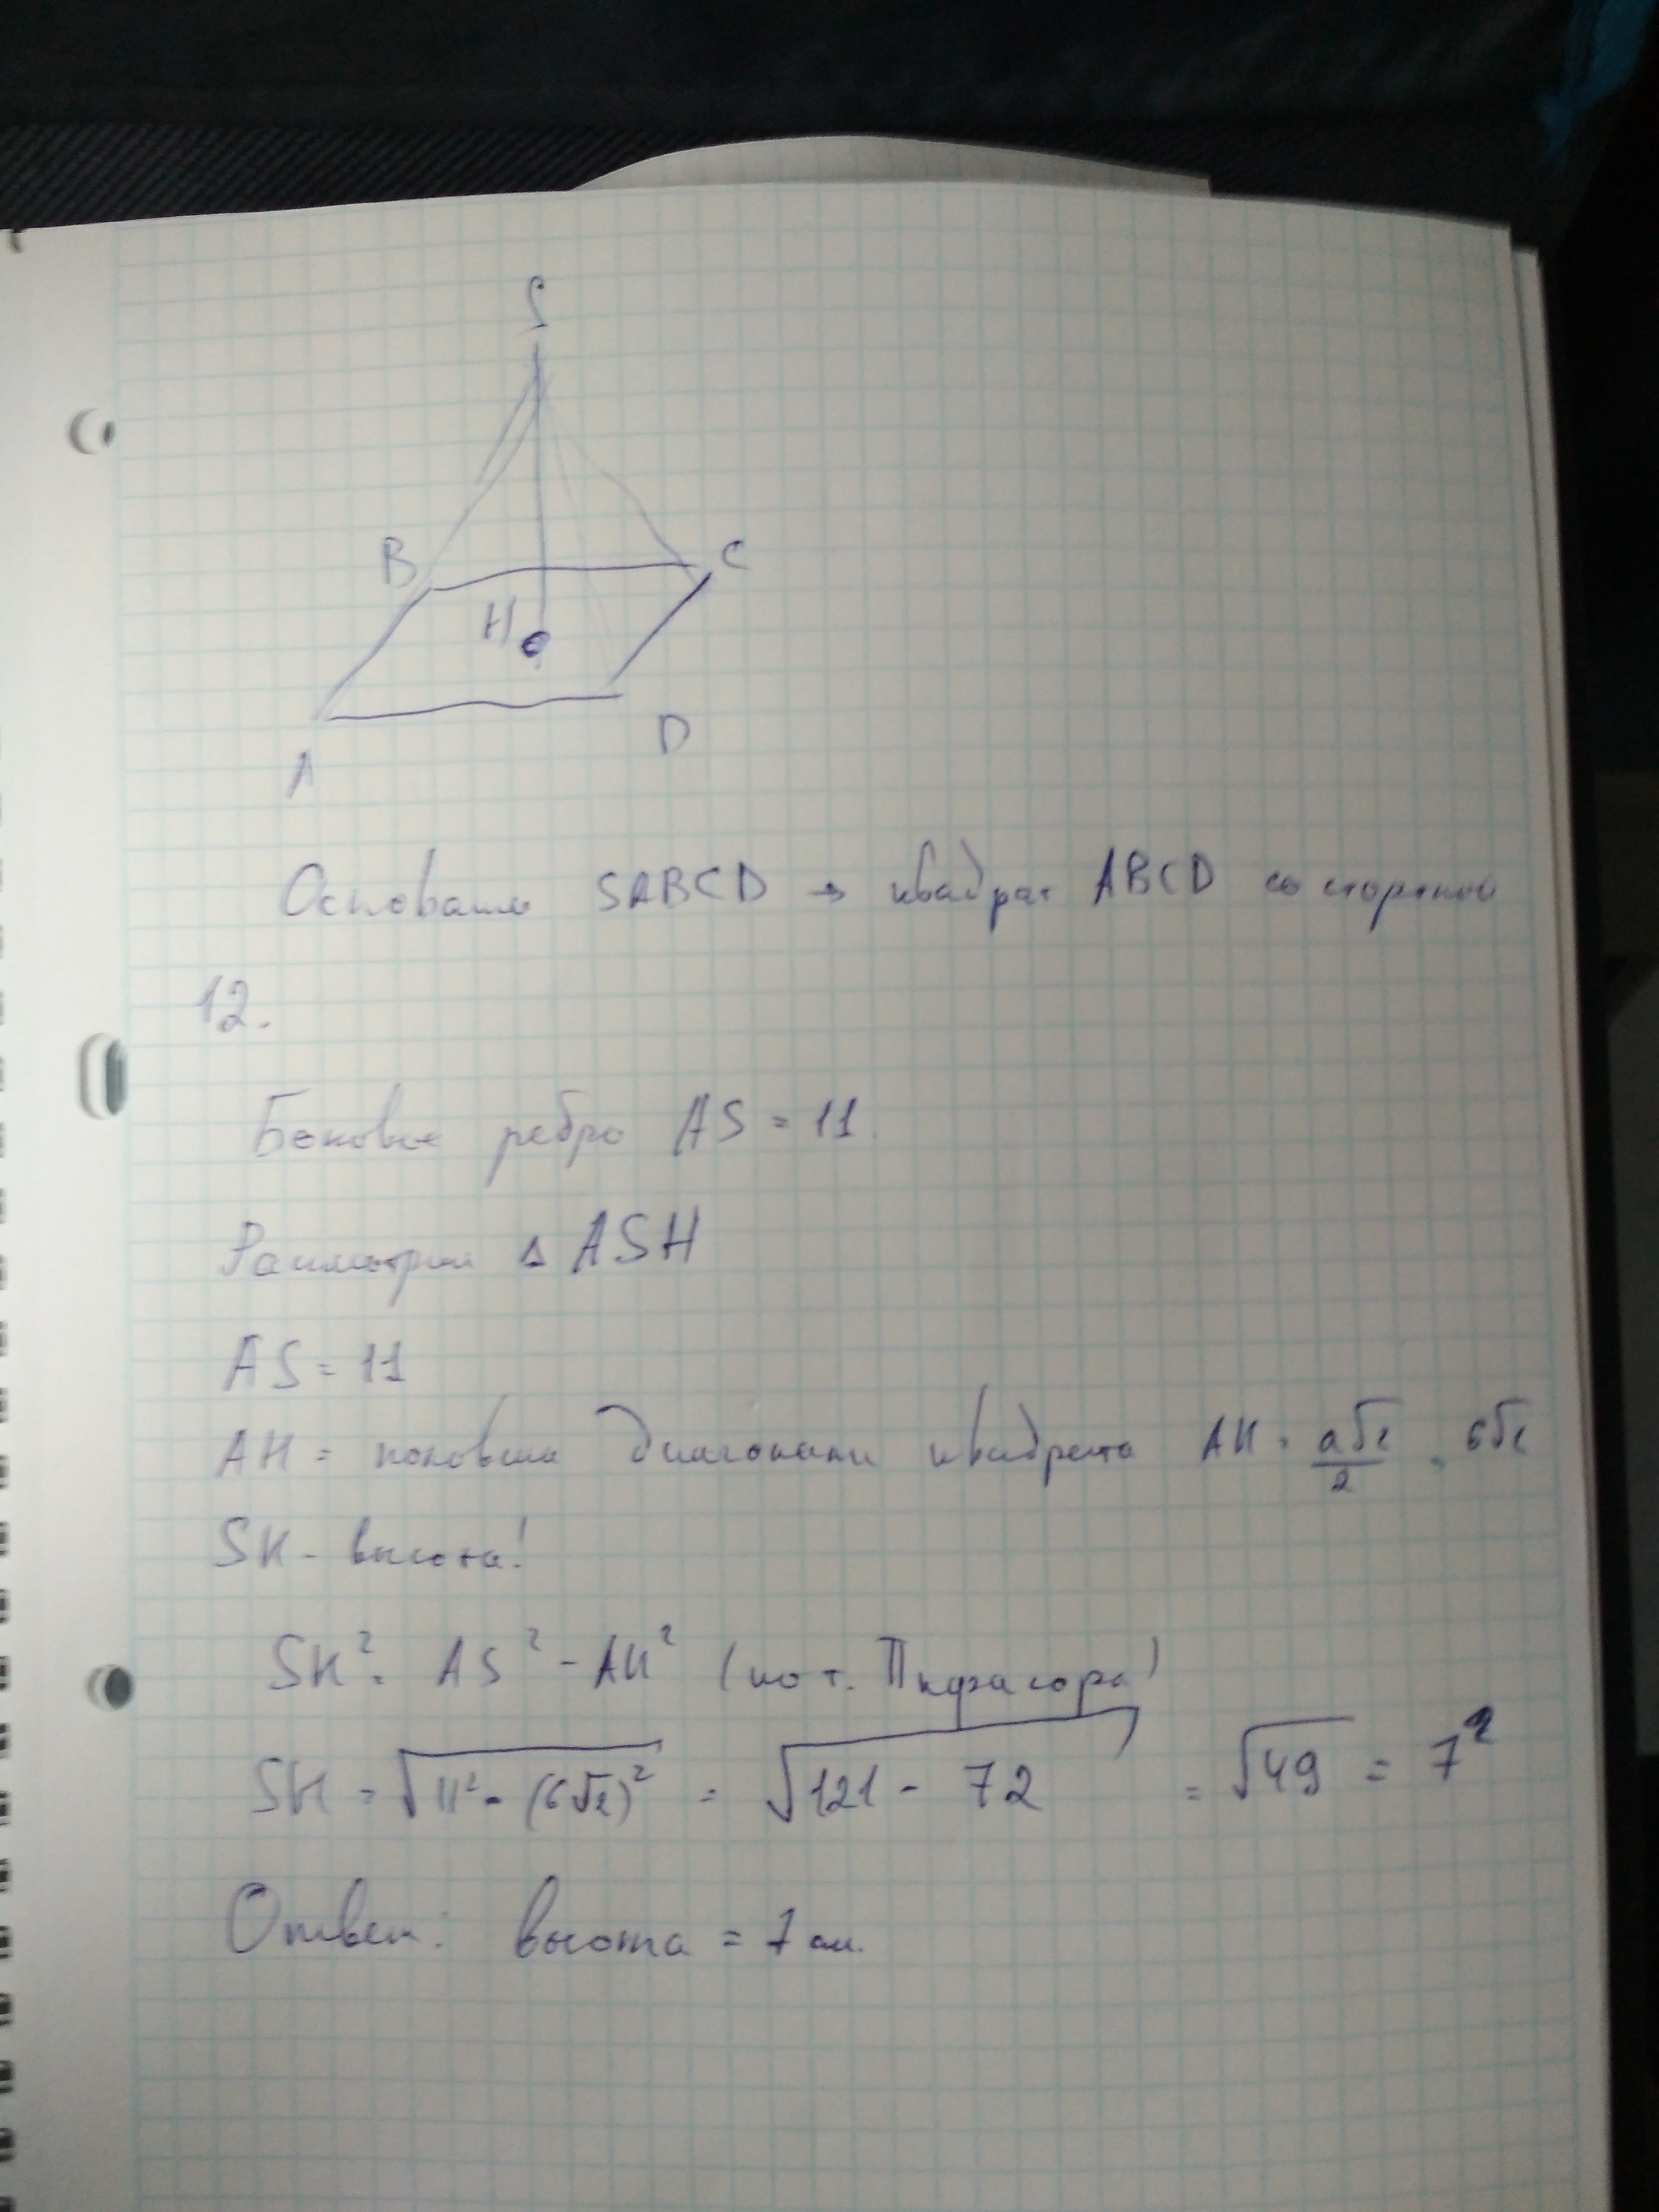 S
B C
H
A D
Основание SABCD → квадрат ABCD со стороной
12.
Боковое ребро AS = 11
Рассмотрим Δ ASH
AS = 11
AH = половина диагонали квадрата AH = a√2/2 = 6√2
SH - высота!
SH² = AS² - AH² (по т. Пифагора)
SH = √(11² - (6√2)²) = √(121 - 72) = √49 = 7²
Ответ: высота = 7 см.